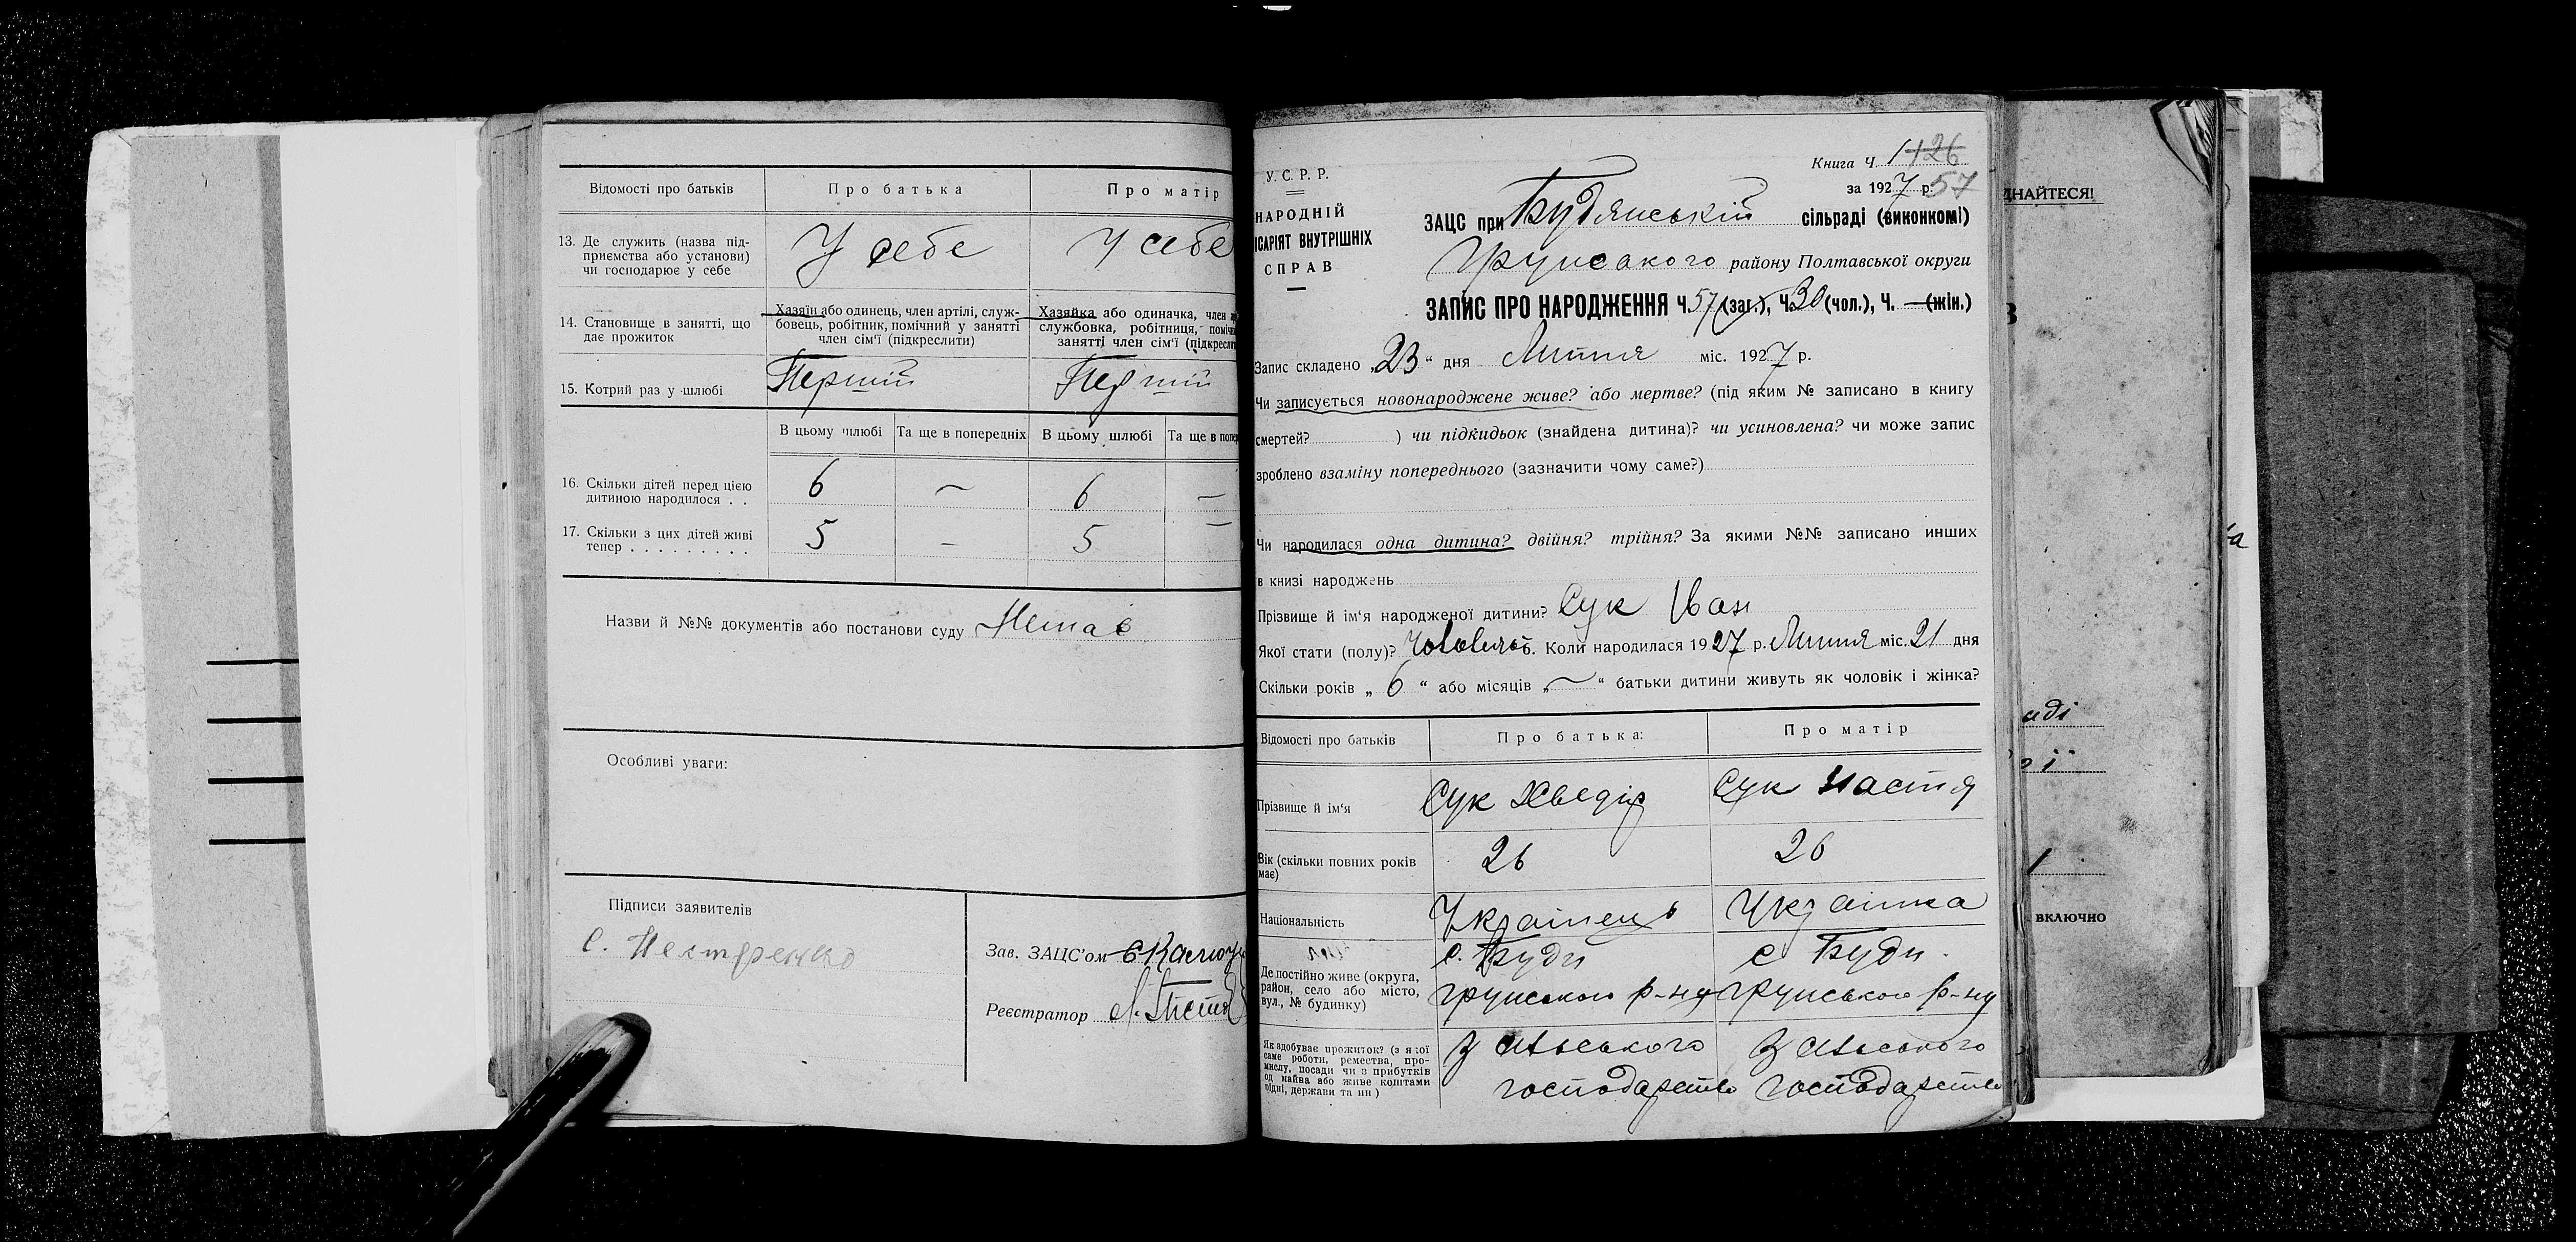 Відомості про батьків Про батька Про матір
13. Де служить (назва під-
приємства або установи)
чи господарює у себе
У себе У себе
14. Становище в занятті, що
дає прожиток
Хазяїн або одинець, член артілі, служ-
бовець, робітник, помічний у занятті
член сім'ї (підкреслити)
Хазяйка або одиначка, член
службовка, робітниця,
занятті член сім'ї
15. Котрий раз у шлюбі Перший Перший
В цьому шлюбі Та ще в попередніх В цьому шлюбі Та ще в
16. Скільки дітей перед цією
дитиною народилося . .
6 — 6 —
17. Скільки з цих дітей живі
тепер . . . . . . . . .
5 — 5 —
Назви й №№ документів або постанови суду Немає
Особливі уваги:
Підписи заявителів
С. Нестренко
Зав. ЗАЦС'ом
Реєстратор
У.С.Р.Р.
НАРОДНІЙ
ІСАРІЯТ ВНУТРІШНІХ
СПРАВ
Книга Ч. 1 126
за 1927 р. 57
ЗАЦС при Будянській сільраді (виконкомі)
Грунського району Полтавської округи
ЗАПИС ПРО НАРОДЖЕННЯ Ч. 57 (заг.), Ч. 30 (чол.), Ч. — (жін.)
Запис складено „23“ дня Липня міс. 1927 р.
Чи записується новонароджене живе? або мертве? (під яким № записано в книгу
смертей? ) чи підкидьок (знайдена дитина)? чи усиновлена? чи може запис
зроблено взаміну попереднього (зазначити чому саме?)
Чи народилася одна дитина? двійня? трійня? За якими №№ записано инших
в книзі народжень
Прізвище й ім'я народженої дитини? Сук Іван
Якої стати (полу)? Чоловічої. Коли народилася 1927 р. Липня міс. 21 дня
Скільки років „6“ або місяців „—“ батьки дитини живуть як чоловік і жінка?
Відомості про батьків Про батька: Про матір
Прізвище й ім'я Сук Хведір Сук Настя
Вік (скільки повних років
має)
26 26
Національність Українець Українка
Де постійно живе (округа,
район, село або місто,
вул., № будинку)
с. Буди
грунського р-ну
с Буди.
грунського р-ну
Як здобуває прожиток? (з якої
саме роботи, ремества, про-
мислу, посади чи з прибутків
од майва або живе коштами
рідні, держави та ин)
З сільського
господарства
З сільського
господарства
ДНАЙТЕСЯ!
аді
ої
включно